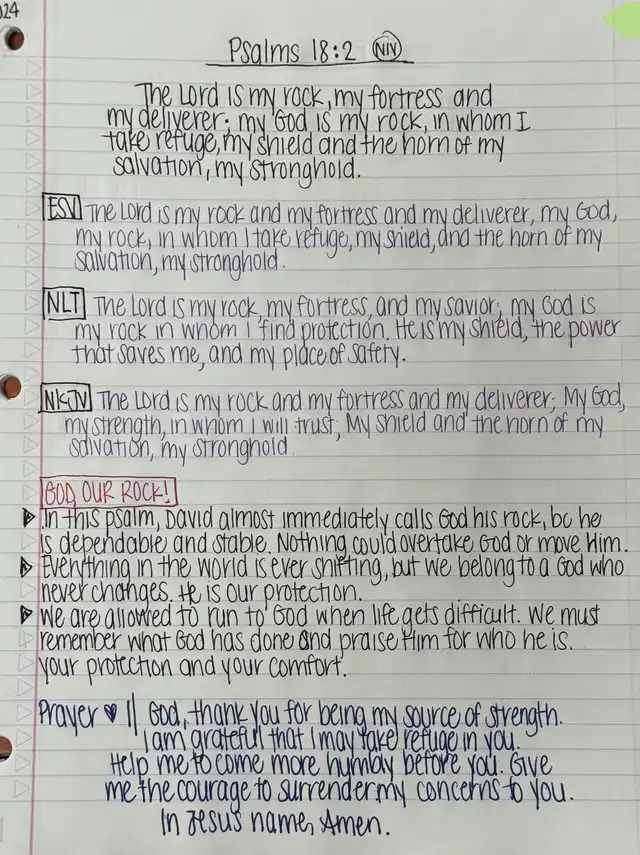 024
Psalms 18:2 NIV
The Lord is my rock, my fortress and
my deliverer; my God is my rock, in whom I
take refuge, my shield and the horn of my
salvation, my stronghold.
ESV The Lord is my rock and my fortress and my deliverer, my God,
my rock, in whom I take refuge, my shield, and the horn of my
salvation, my stronghold.
NLT The Lord is my rock, my fortress, and my savior; my God is
my rock in whom I find protection. He is my shield, the power
that saves me, and my place of safety.
NKJV The Lord is my rock and my fortress and my deliverer; My God,
my strength, in whom I will trust; My shield and the horn of my
salvation, my stronghold
GOD, OUR ROCK!
In this psalm, David almost immediately calls God his rock, bc he
is dependable and stable. Nothing could overtake God or move Him.
Everything in the world is ever shifting, but we belong to a God who
never changes. He is our protection.
We are allowed to run to God when life gets difficult. We must
remember what God has done and praise Him for who he is.
your protection and your comfort.
Prayer ♥ || God, thank you for being my source of strength.
I am grateful that I may take refuge in you.
Help me to come more humbly before you. Give
me the courage to surrender my concerns to you.
In Jesus name, Amen.